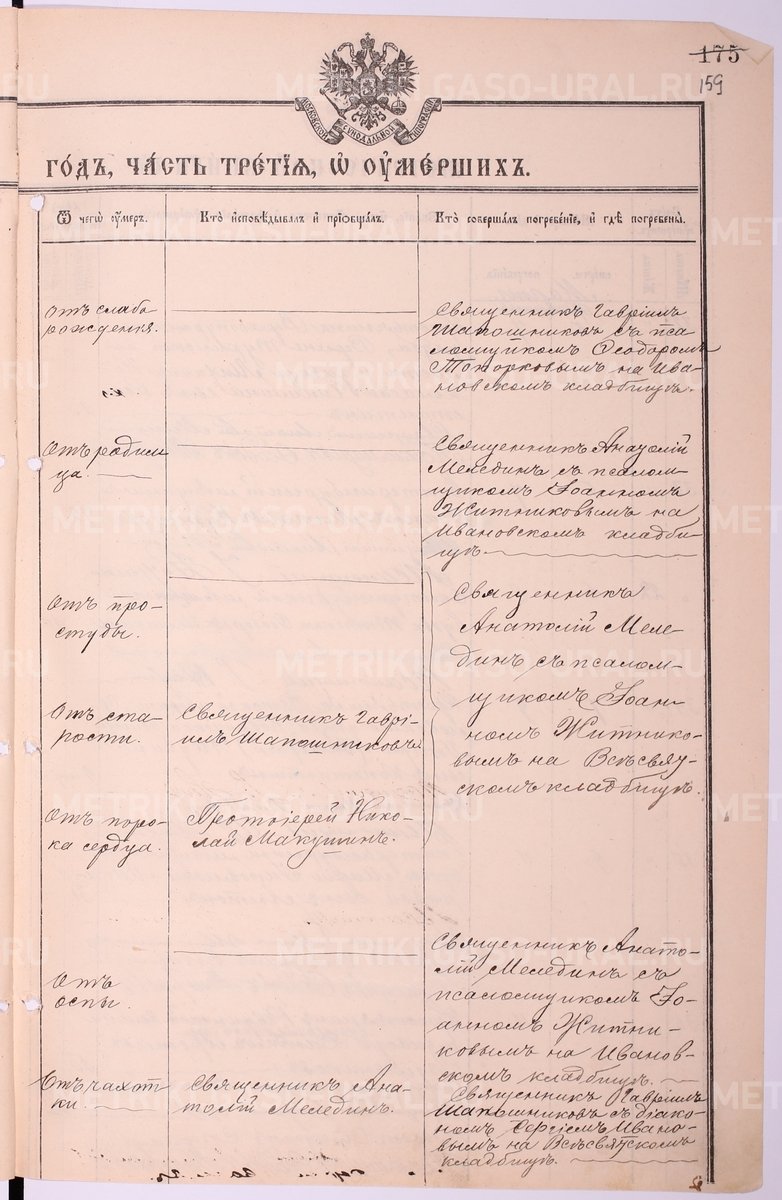 175
159
МОСКОВСКОЙ СѴНОДАЛЬНОЙ ТИПОГРАФІИ
ГОДЪ, ЧАСТЬ ТРЕТІѦ, Ѡ ОУМЕРШИХЪ.
Ѿ чегѡ оумеръ.
Кто исповѣдывалъ и пріобщалъ.
Кто совершалъ погребеніе, и гдѣ погребены.
Отъ слабо
рожденія.
Священникъ Гавріилъ
Шапошниковъ съ пса
ломщикомъ Ѳеодоромъ
Топорковымъ на Ива
новскомъ кладбищѣ.
Отъ родим
ца.
Священникъ Анатолій
Мелединъ съ псалом-
щикомъ Іоанномъ
Житниковымъ на
Ивановскомъ кладби-
щѣ
Отъ про-
студы.
Священникъ
Анатолій Меле-
динъ съ псалом-
щикомъ Іоан-
номъ Житнико-
вымъ на Всѣсвят-
скомъ кладбищѣ.
Отъ ста-
рости.
Священникъ Гаврі-
илъ Шапошниковъ
Отъ поро-
ка сердца.
Протоіерей Нико-
лай Макушинъ.
Отъ
оспы.
Священникъ Анато-
лій Мелединъ съ
псаломщикомъ Іо-
анномъ Житни-
ковымъ на Иванов-
скомъ кладбищѣ.
Отъ чахот
ки.
Священникъ Ана-
толій Мелединъ.
Священникъ Гавріилъ
Шапошниковъ съ діако-
номъ Сергіемъ Ивано-
вымъ на Всѣсвятскомъ
кладбищѣ.
METRIKI.GASO-URAL.RU